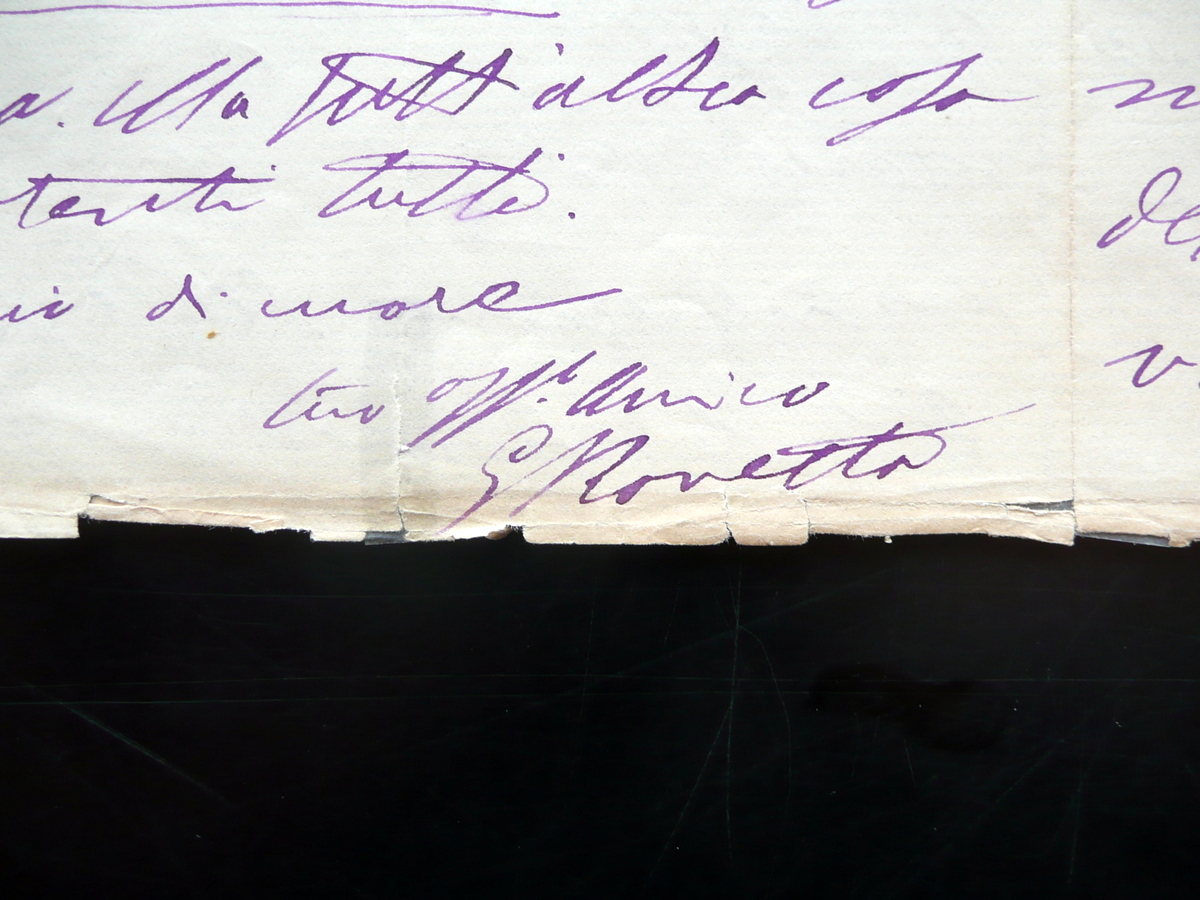 a. Ma tutt'altra cosa
tenti tutti.
di more
tuo aff. Amico
G Rovetta